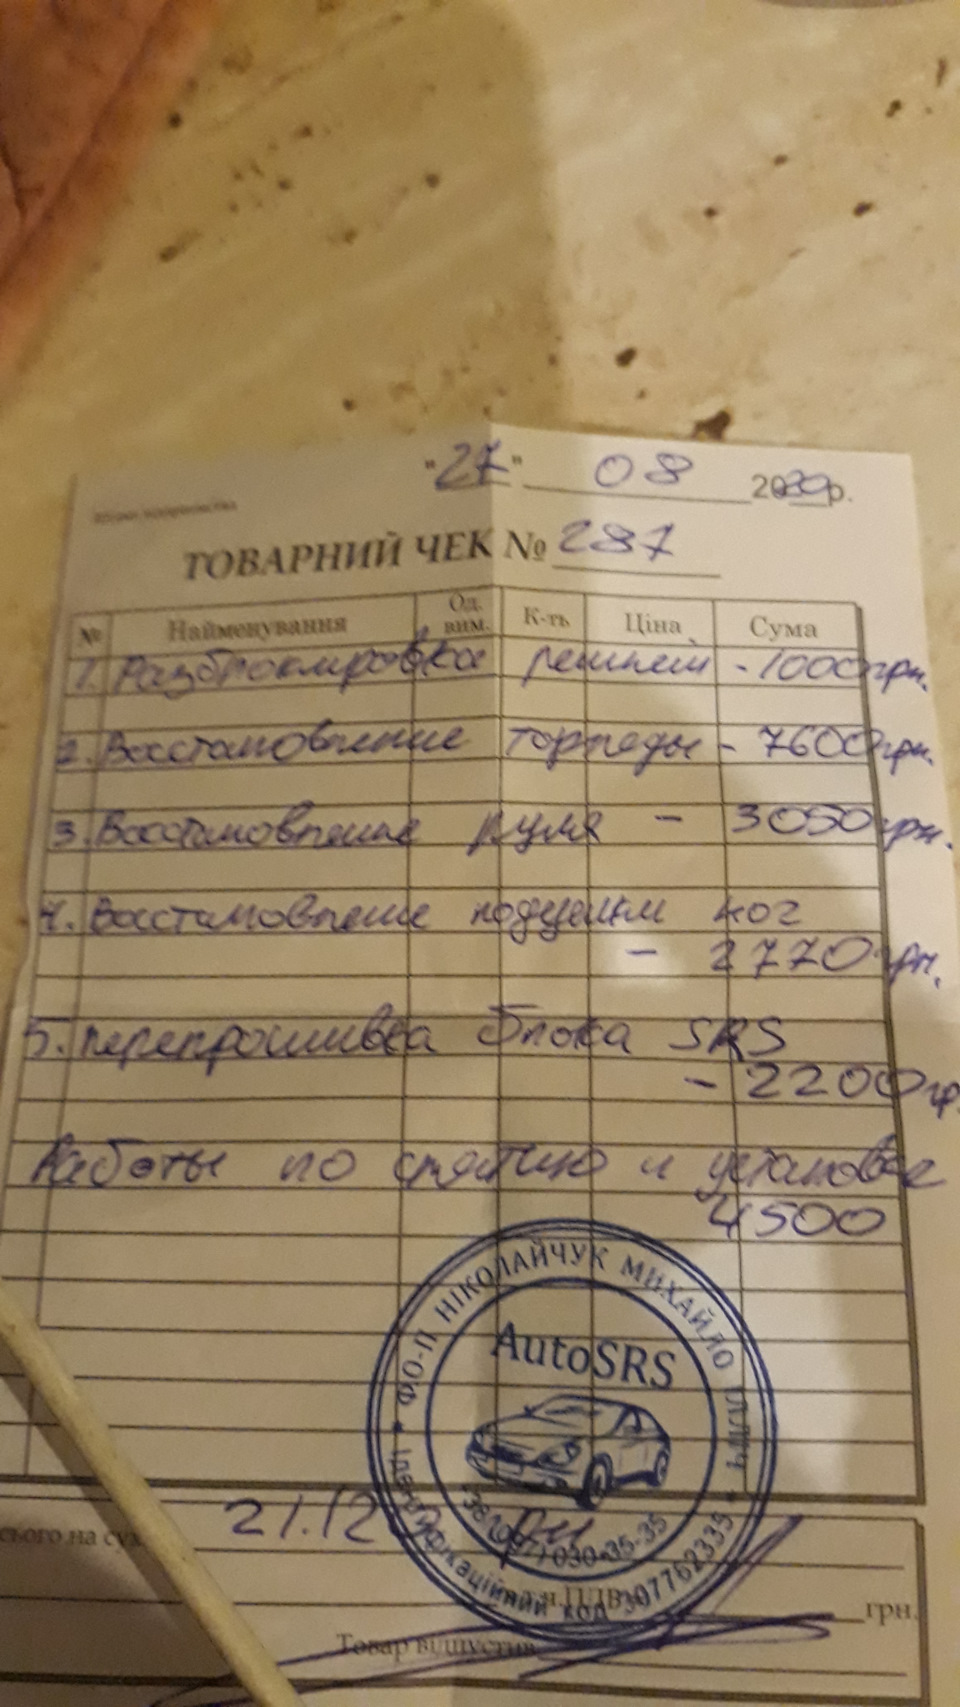 "27" 08 2020р.
ТОВАРНИЙ ЧЕК № 287
№ Найменування Од. вим. К-ть Ціна Сума
1. Разблокировка ремней - 1000 грн.
2. Восстановление торпеды - 7600 грн.
3. Восстановление руля - 3050 грн.
4. Восстановление подушки ног
- 2770 грн.
5. перепрошивка блока SRS
- 2200 гр.
Работы по снятию и установке
4500
Ф.О-П НІКОЛАЙЧУК МИХАЙЛО ІЛЛІЧ
AutoSRS
030-35-35
Ідентифікаційний код
ПДВ
21.12
грн.
Товар відпустив